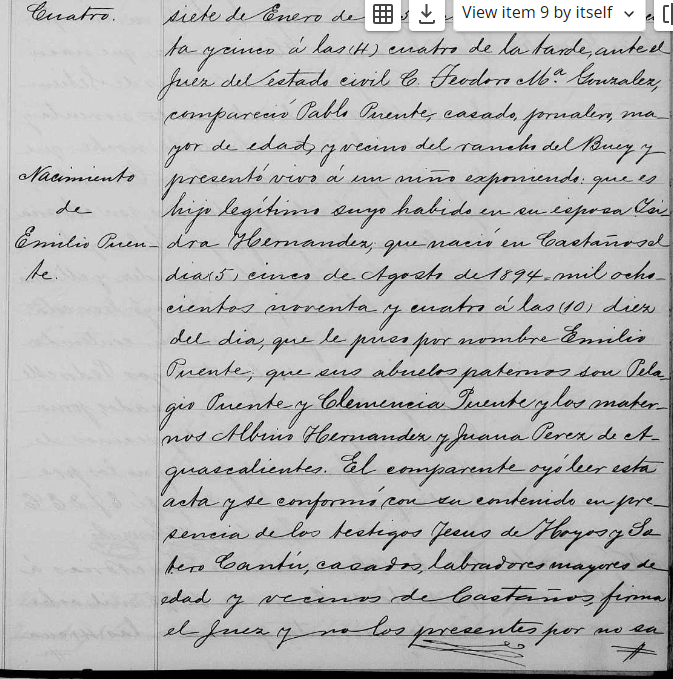 View item 9 by itself
Cuatro.
siete de Enero de
ta y cinco á las (4) cuatro de la tarde, ante el
Juez del estado civil C. Teodoro Mª Gonzalez,
compareció Pablo Puente, casado, jornalero, ma-
yor de edad, y vecino del rancho del Buey y
Nacimiento
de
Emilio Puen-
te.
presentó vivo á un niño exponiendo: que es
hijo legítimo suyo habido en su esposa Isi-
dra Hernandez, que nació en Castaños el
dia (5) cinco de Agosto de 1894. mil ocho-
cientos noventa y cuatro á las (10) diez
del dia, que le puso por nombre Emilio
Puente, que sus abuelos paternos son Pela-
gio Puente y Clemencia Puente y los mater-
nos Albino Hernandez y Juana Perez de A-
guascalientes. El comparente oyó leer esta
acta y se conformó con su contenido en pre-
sencia de los testigos Jesus de Hoyos y So
tero Cantú, casados, labradores mayores de
edad y vecinos de Castaños, firma
el Juez y no los presentes por no sa